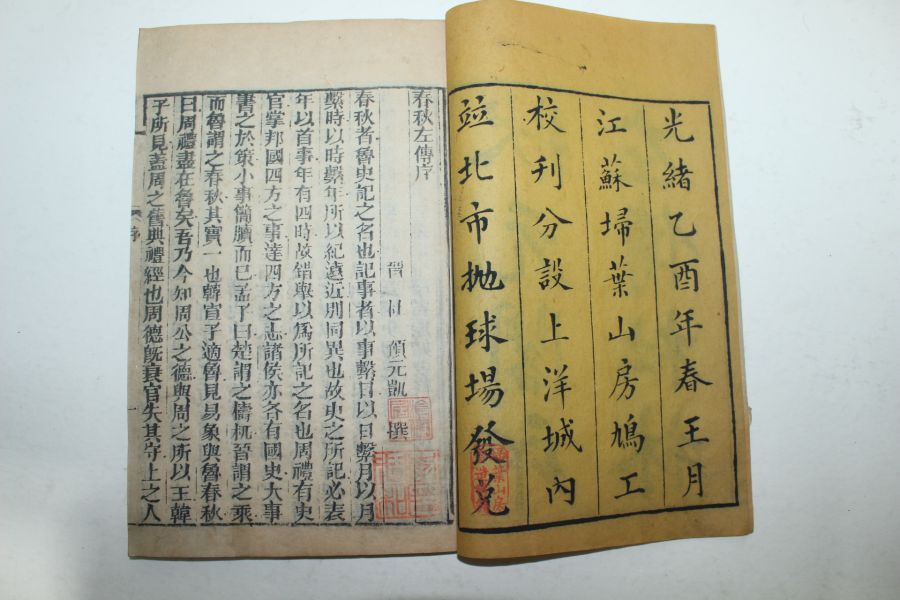 光緒乙酉年春王月
江蘇埽葉山房鳩工
校刊分設上洋城內
竝北市拋球場發兌
春秋左傳序
晉 杜 預元凱 撰
春秋者魯史記之名也記事者以事繫日以日繫月以月
繫時以時繫年所以紀遠近別同異也故史之所記必表
年以首事年有四時故錯舉以為所記之名也周禮有史
官掌邦國四方之事達四方之志諸侯亦各有國史大事
書之於策小事簡牘而已孟子曰楚謂之檮杌晉謂之乘
而魯謂之春秋其實一也韓宣子適魯見易象與魯春秋
曰周禮盡在魯矣吾乃今知周公之德與周之所以王韓
子所見蓋周之舊典禮經也周德既衰官失其守上之人
序
一